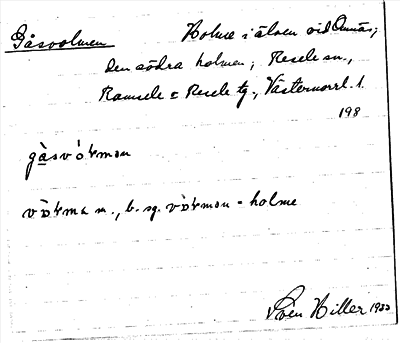 Gåsvolmen Holme i älven vid Omnäs;
den södra holmen; Resele sn.,
Ramsele o Resele tg., Västernorrl. l.
198
gàsvóɽmən
m., b. sg. = holme
Sven Hiller 1933